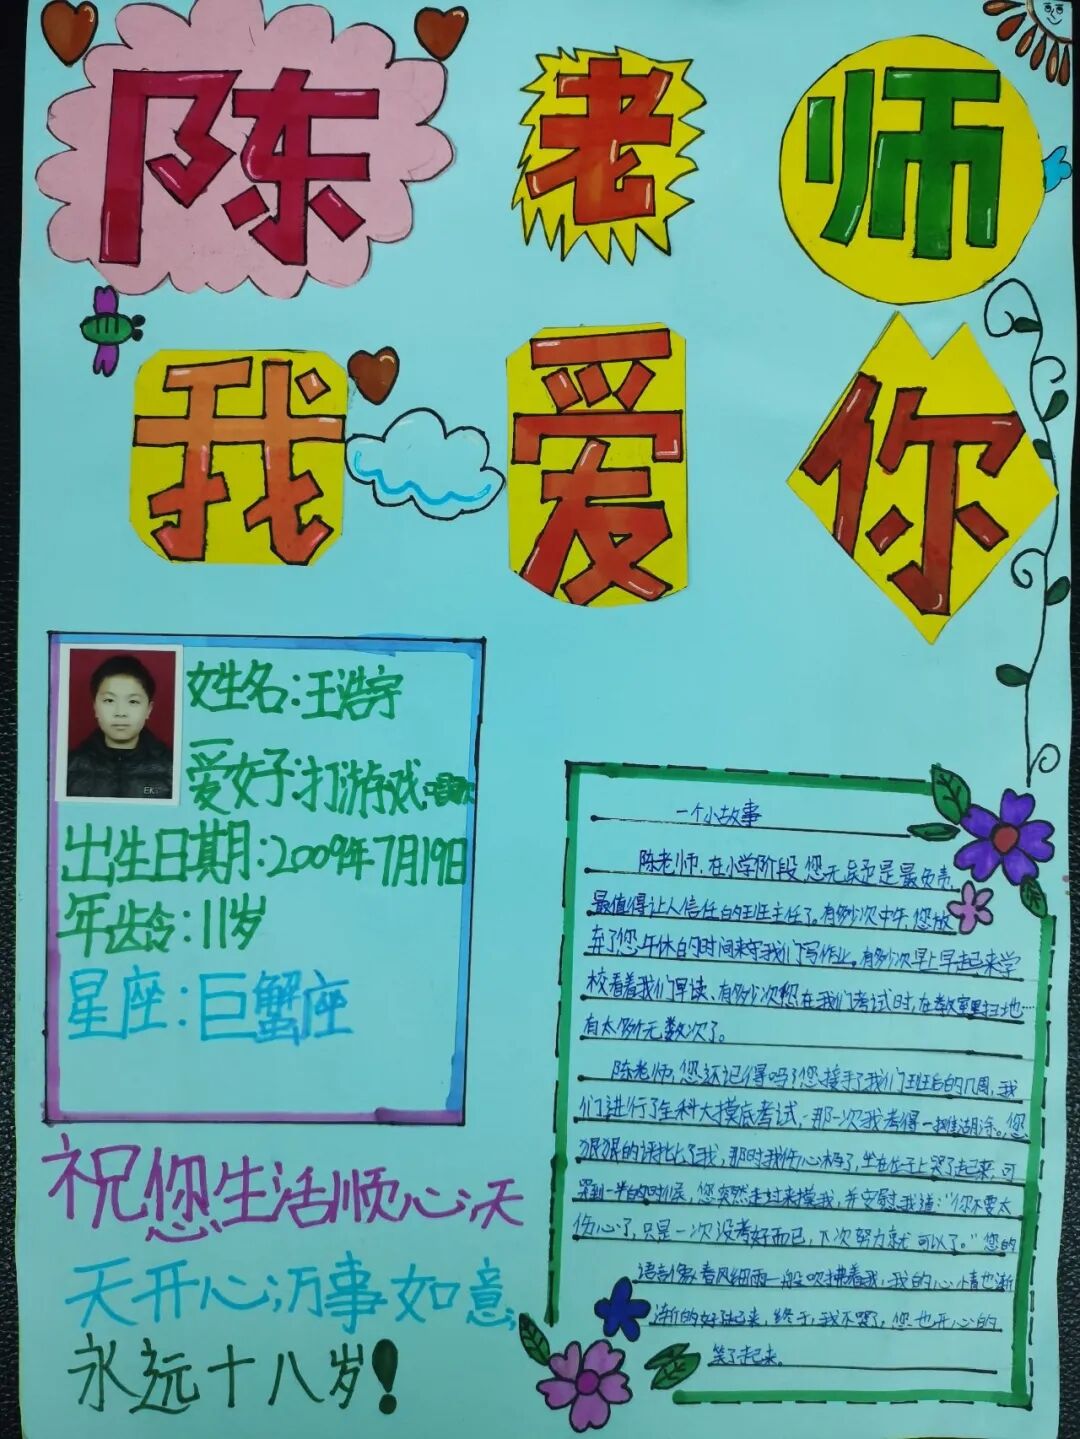 陈老师
我爱你
姓名:王浩宇
爱好:打游戏.唱歌
出生日期:2009年7月19日
年龄:11岁
星座:巨蟹座
祝您生活顺心,天
天开心,万事如意,
永远十八岁!
一个小故事
陈老师,在小学阶段您无疑是最负责,
最值得让人信任的班主任了。有多少次中午,您放
弃了您午休的时间来守我们写作业。有多少次早上早起来学
校看着我们早读、有多少次您在我们考试时,在教室里扫地…
有太多个无数次了。
陈老师,您还记得吗?您接手了我们班后的几周,我
们进行了全科大摸底考试,那一次我考得一塌糊涂。您
狠狠的评批了我,那时我伤心极了,坐在位子上哭了起来,可
哭到一半的时候,您突然走过来摸我,并安慰我道:“你不要太
伤心了,只是一次没考好而已,下次努力就可以了。”您的
语言像春风细雨一般吹拂着我,我的心情也渐
渐的好起来,终于,我不哭了,您也开心的
笑了起来。